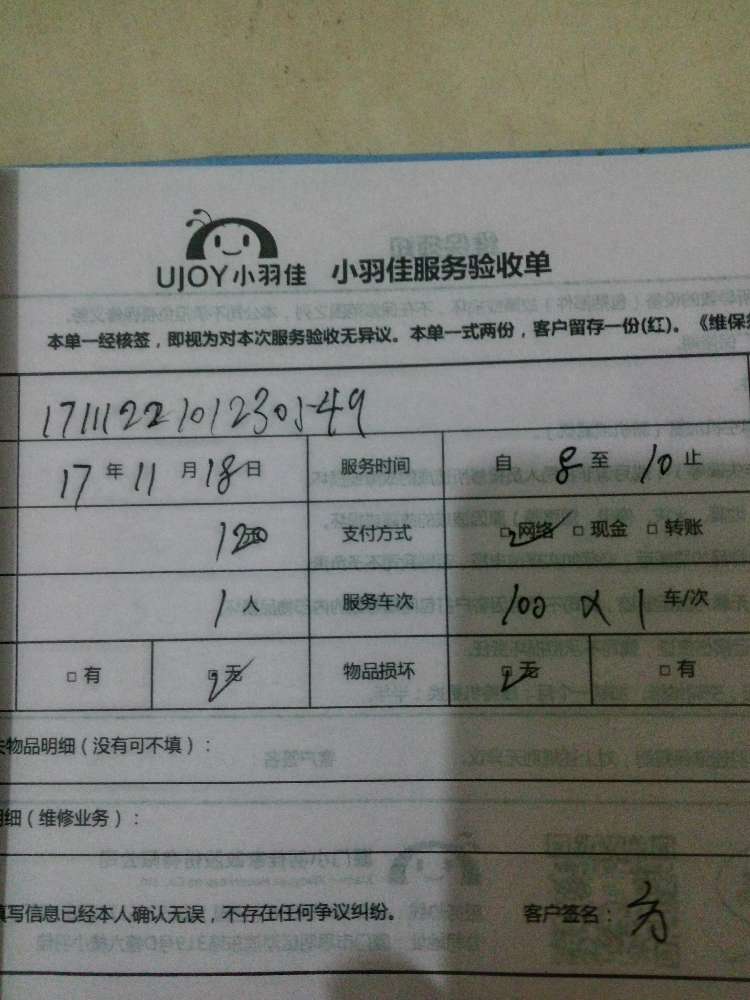 UJOY小羽佳 小羽佳服务验收单
本单一经核签，即视为对本次服务验收无异议。本单一式两份，客户留存一份(红)。《维保
1711122101230549
17年11月18日 服务时间 自8至10止
120元 支付方式 □网络 □现金 □转账
1人 服务车次 100 × 1车/次
□有 □无 物品损坏 □无 □有
失物品明细（没有可不填）：
明细（维修业务）：
填写信息已经本人确认无误，不存在任何争议纠纷。 客户签名：